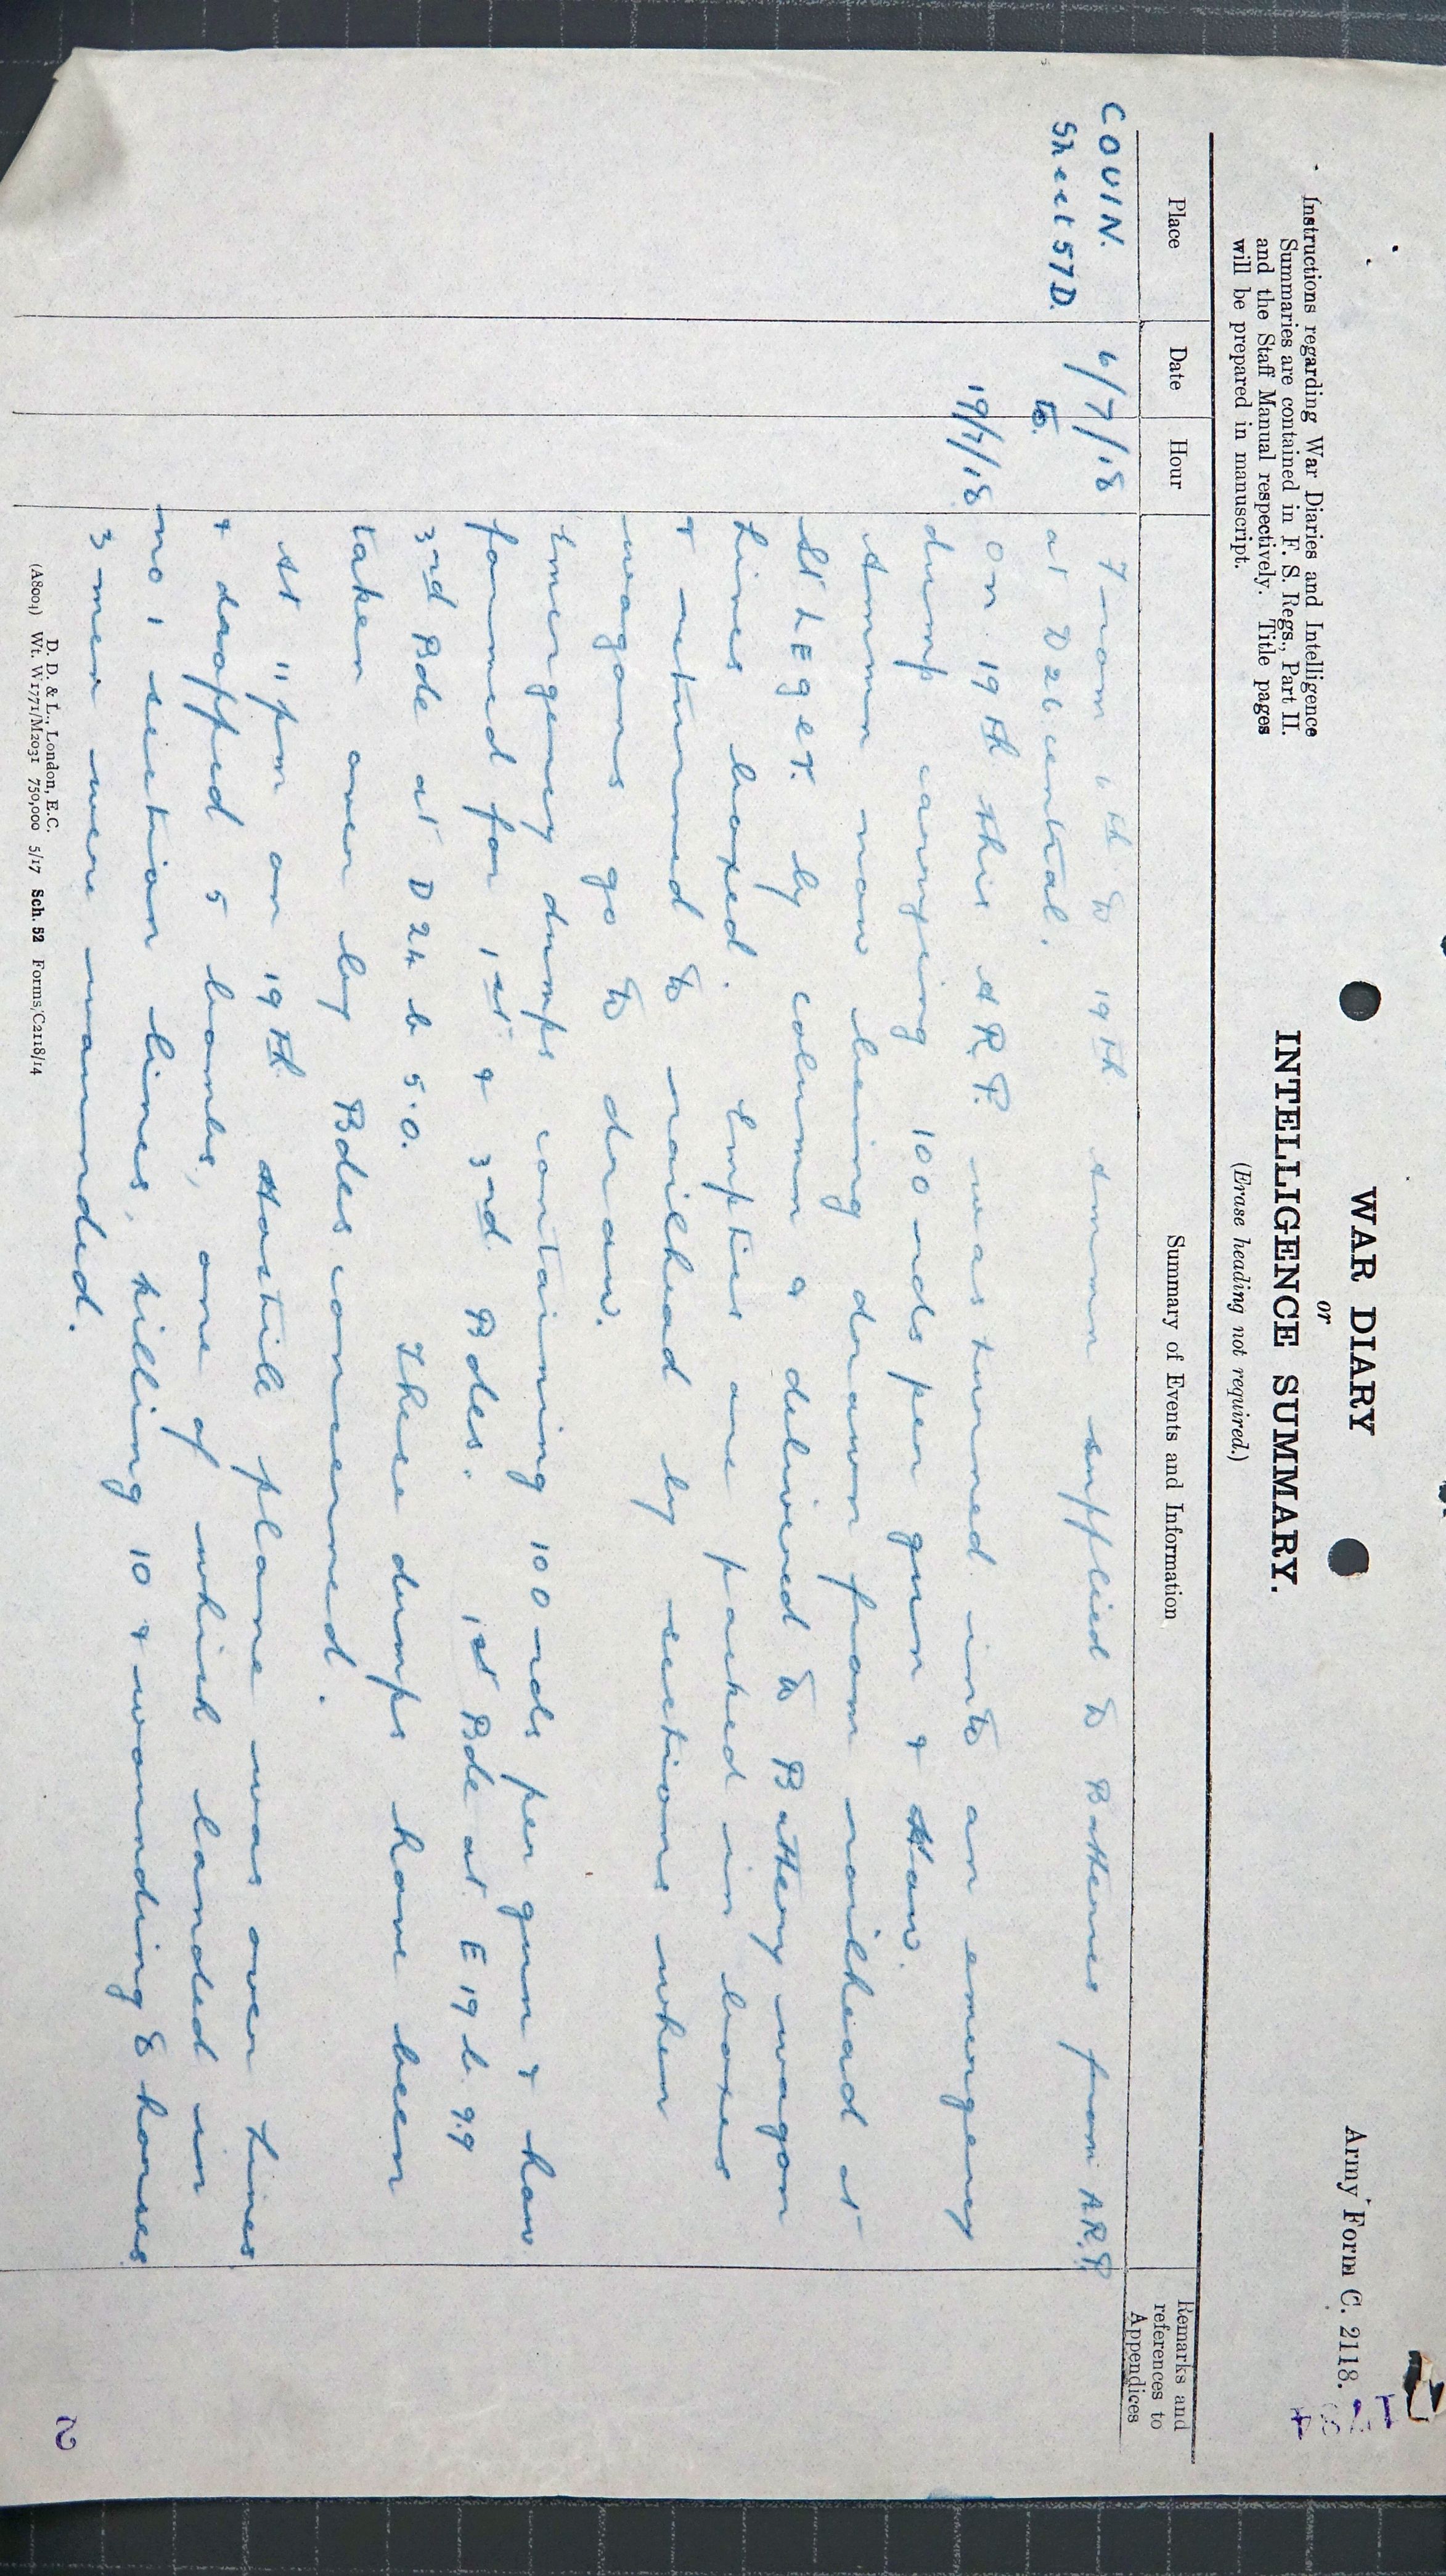 Army Form C. 2118.
WAR DIARY
or
INTELLIGENCE SUMMARY.
(Erase heading not required.)
Instructions regarding War Diaries and Intelligence
Summaries are contained in F. S. Regs., Part II.
and the Staff Manual respectively. Title pages
will be prepared in manuscript.
Place Date Hour Summary of Events and Information Remarks and references to Appendices
COUIN. 6/7/18 From 6th to 19th Ammn supplied to Batteries from A.R.P.
Sheet 57D. to. at D26 central.
19/7/18 On 19th this A.R.P. was turned into an emergency
dump carrying 100 rds per gun & How.
Ammn now being drawn from railhead at
St LEger. by column & delivered to Battery wagon
lines boxed. Empties are packed in boxes
& returned to railhead by sections when
wagons go to draw.
Emergency dumps containing 100 rds per gun & how
formed for 1st & 3rd Bdes. 1st Bde at E 19 b 9.9
3rd Bde at D 24 b 5.0. These dumps have been
taken over by Bdes concerned.
At 11 pm on 19th Hostile plane was over Lines
& dropped 5 bombs, one of which landed in
No 1 section lines, killing 10 & wounding 8 horses
3 men were wounded.
D. D. & L., London, E.C.
(A8004) Wt. W1771/M2031 750,000 5/17 Sch. 52 Forms/C2118/14
2